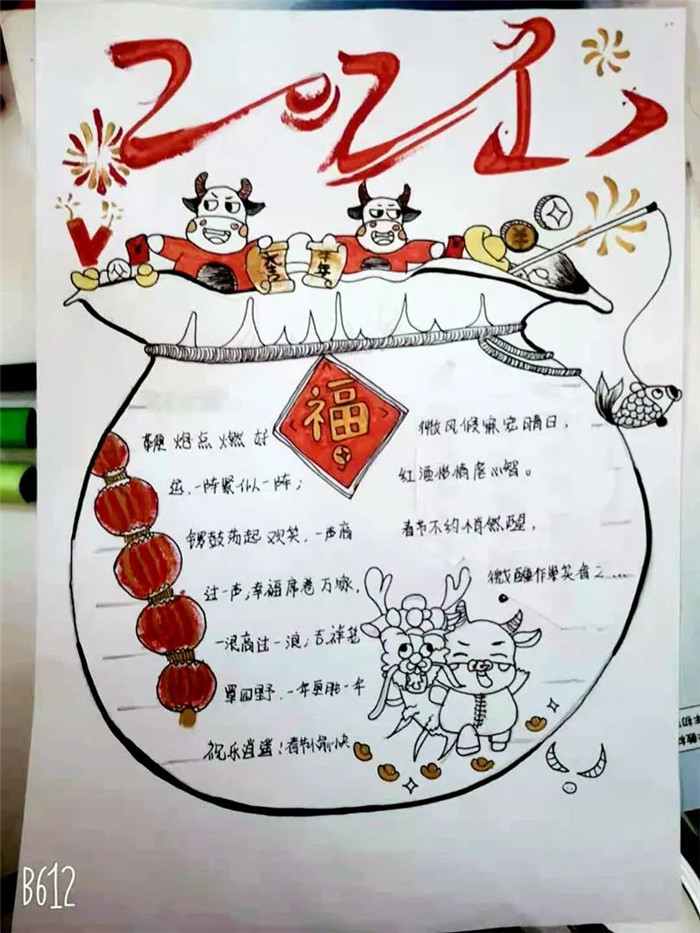 2021
大吉
牛年
羊
福
鞭炮点燃好
运,一阵紧似一阵;
锣鼓荡起欢笑,一声高
过一声;幸福席卷万家,
一浪高过一浪;吉祥笼
罩四野,一年更胜一年
祝乐逍遥!春节愉快
微风候寐宏晴日,
红酒悠情
春节不约悄然醒,
微醺作
B612